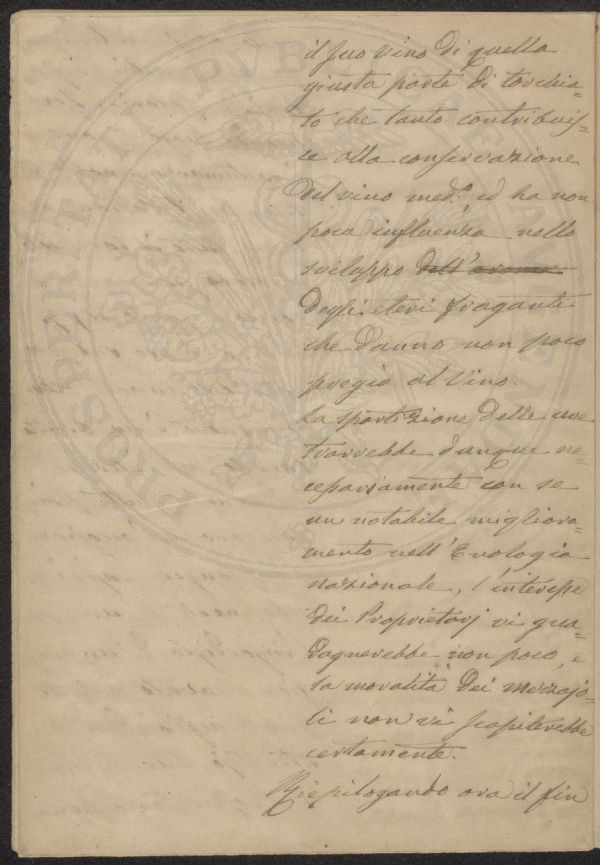 il suo vino di quella
giusta parte di torchia=
to che tanto contribuis=
ce alla conservazione
del vino med.º, ed ha non
poca influenza nello
sviluppo dell'aroma
degli eteri fraganti
che danno non poco
pregio al vino.
La spartizione delle uve
trarrebbe dunque ne=
cessariamente con se
un notabile migliora=
mento nell'Enologia
nazionale, l'interesse
dei Proprietarj vi gua=
dagnerebbe non poco, e
la moralità dei mezzajo=
li non vi scapiterebbe
certamente.
Riepilogando ora il fin
PROSPERITATI PVBLICAE